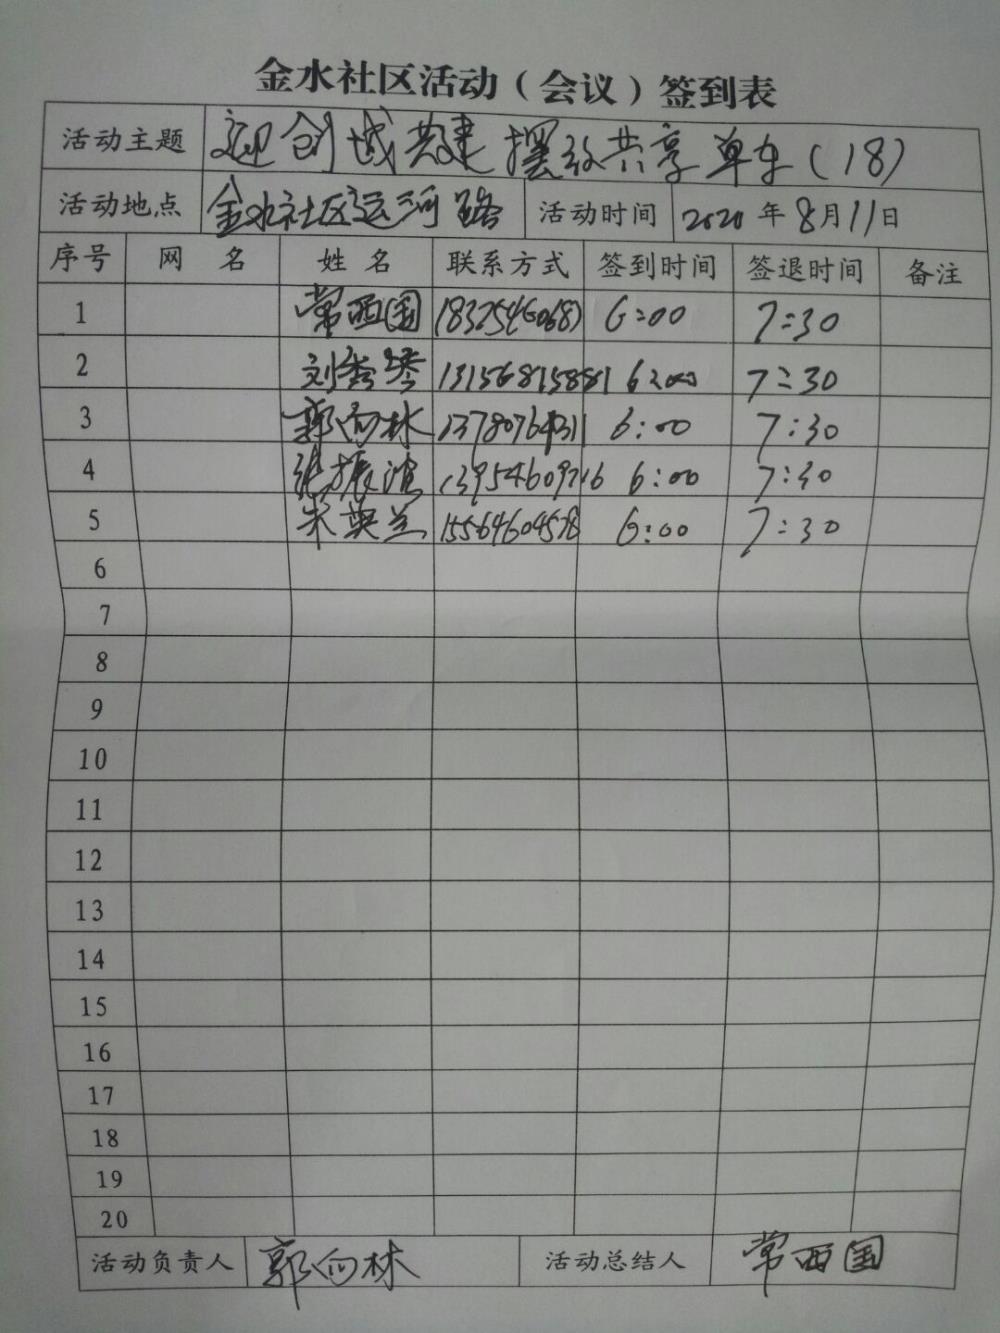 金水社区活动（会议）签到表
活动主题 迎创城共建 摆放共享单车(18)
活动地点 金水社区运河路 活动时间 2020年8月11日
序号 网 名 姓 名 联系方式 签到时间 签退时间 备注
1 常西国 6:00 7:30
2 刘秀琴 6:00 7:30
3 郭向林 6:00 7:30
4 张振滨 13954609716 6:00 7:30
5 朱英兰 15564604578 6:00 7:30
6
7
8
9
10
11
12
13
14
15
16
17
18
19
20
活动负责人 郭向林 活动总结人 常西国